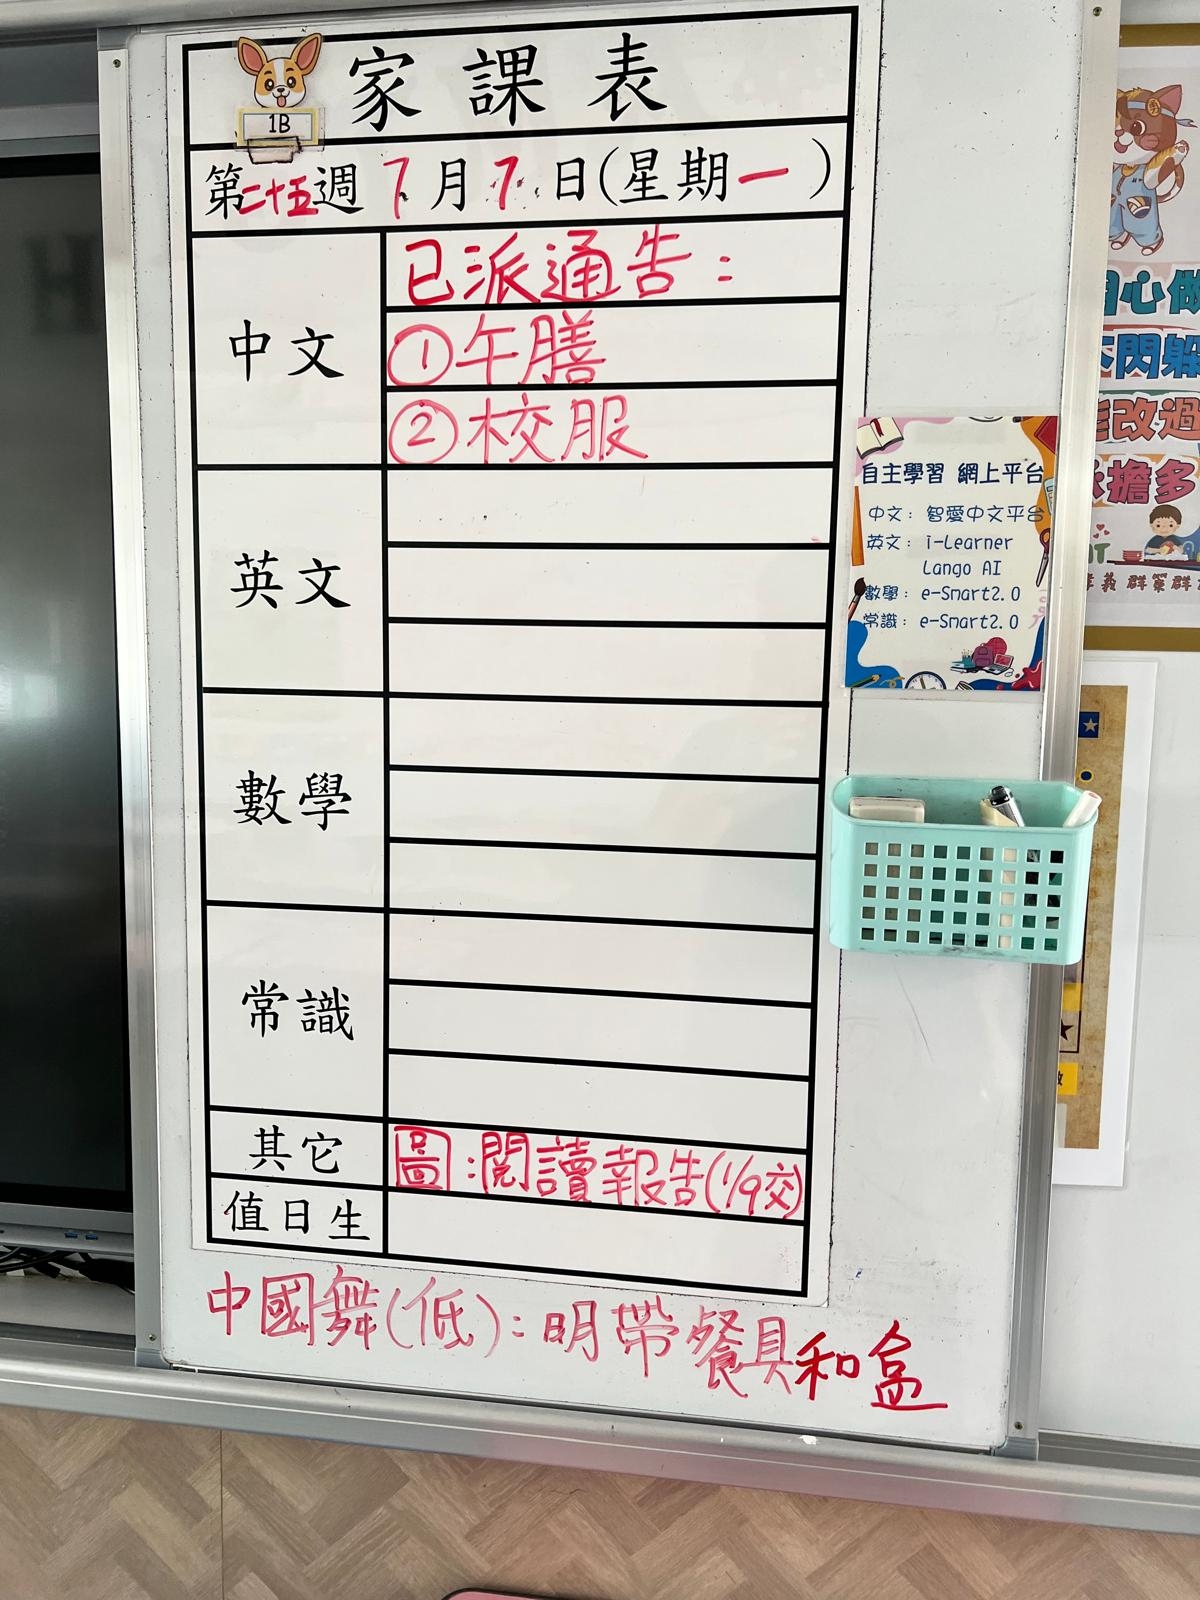 家課表
1B
第二十五週 7月7日(星期一)
中文
已派通告:
①午膳
②校服
英文
數學
常識
其它
圖:閱讀報告(1/9交)
值日生
中國舞(低):明帶餐具和盒
自主學習 網上平台
中文: 智愛中文平台
英文: i-Learner
Lango AI
數學: e-Smart2.0
常識: e-Smart2.0
心做
閃躲
改過
擔多
義群策群